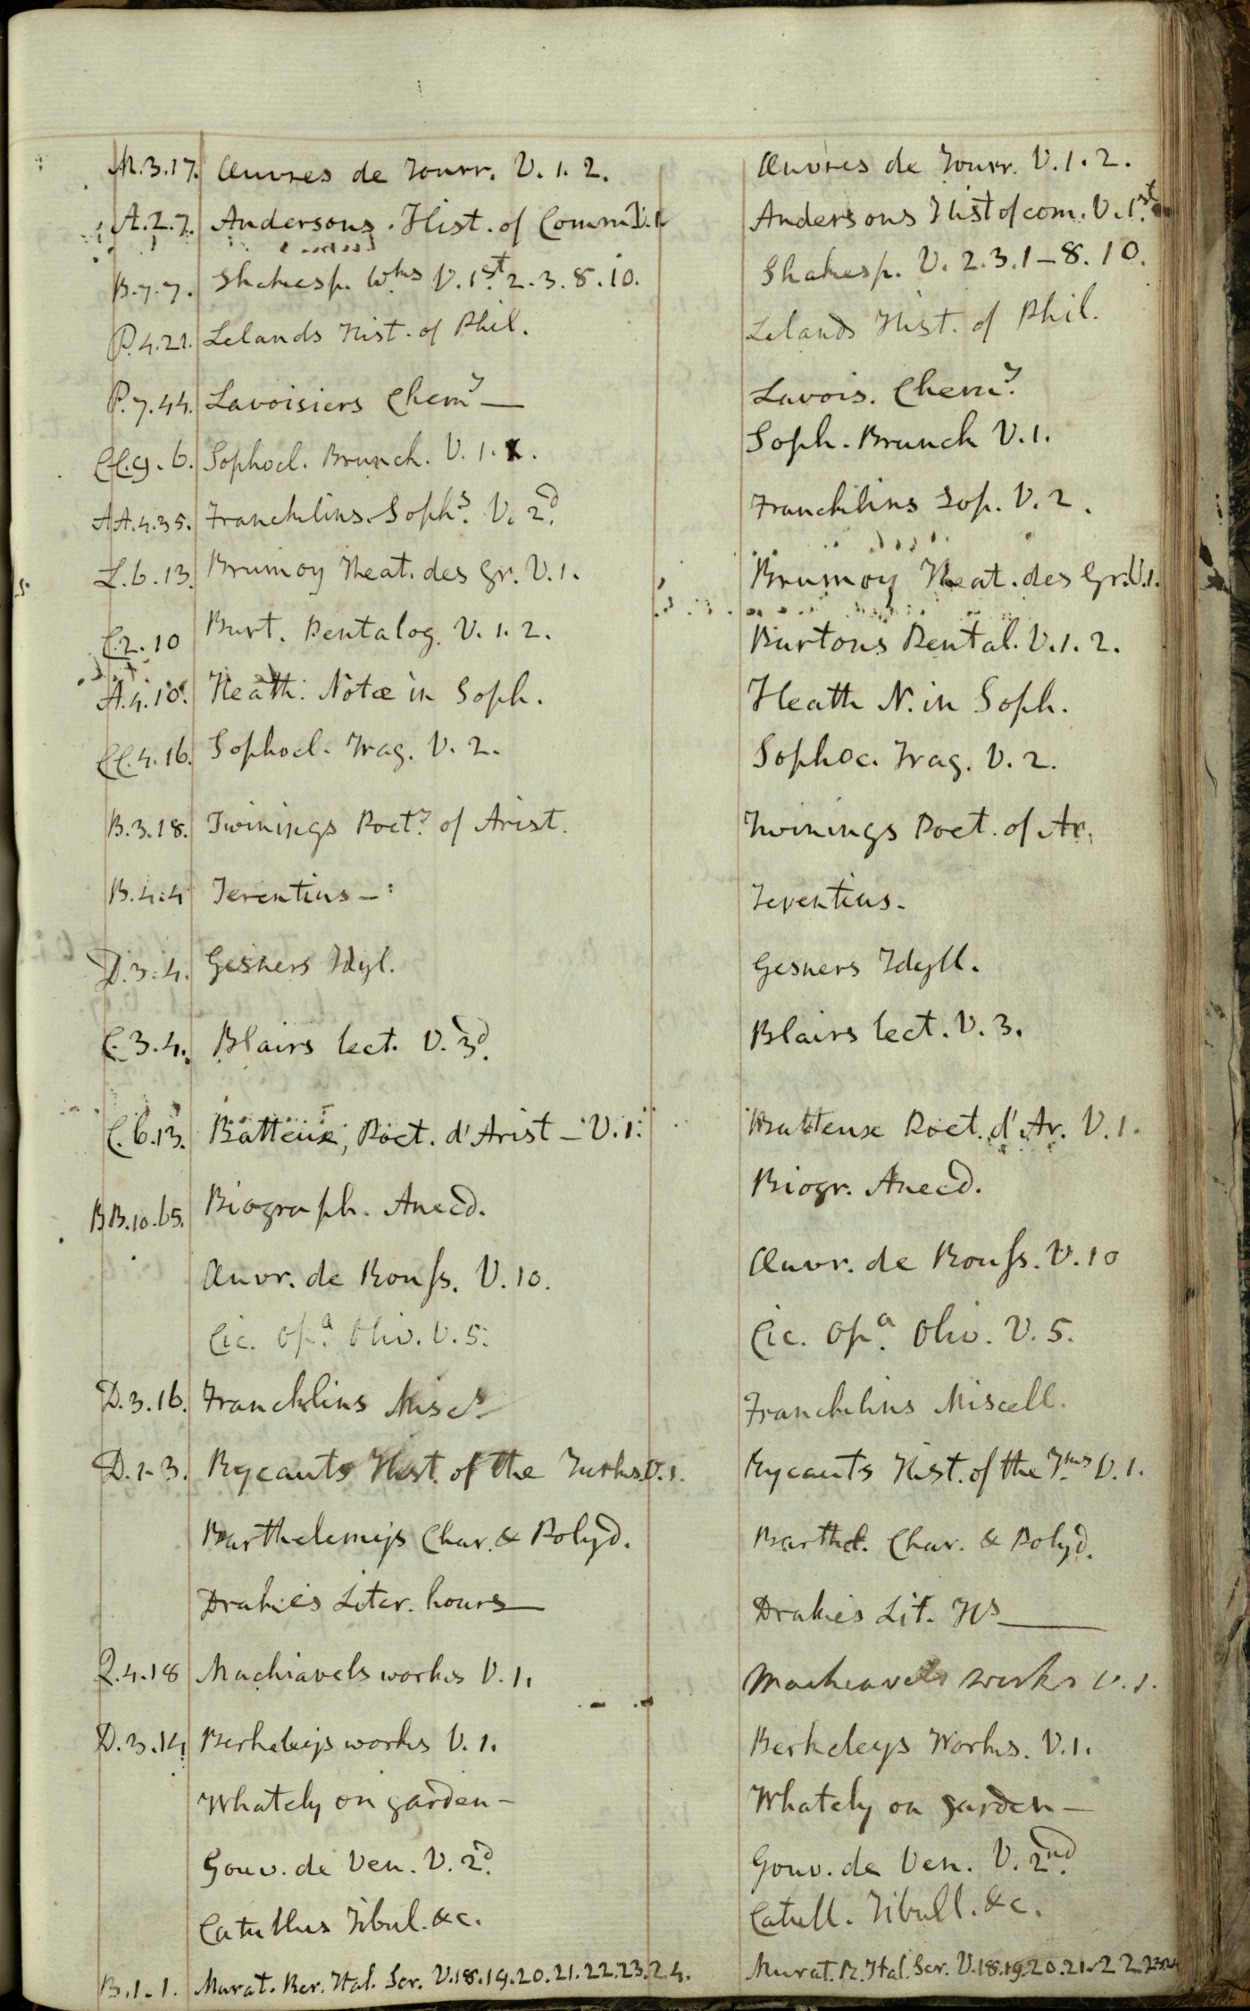 M.3.17. Œuvres de Tourr. V. 1. 2. Œuvres de Tourr. V. 1. 2.
A.2.7. Andersons. Hist. of Comm. V.1. Andersons Hist of com. V. 1st
B.7.7. Shakesp. Wks V. 1st 2. 3. 8. 10. Shakesp. V. 2. 3. 1 – 8. 10.
P.4.21. Lelands Hist. of Phil. Lelands Hist. of Phil.
P.7.44. Lavoisiers Chemy — Lavois. Chemy.
CC.9.6. Sophocl. Brunck. V. 1. Soph. Brunck V. 1.
AA.4.35. Francklins Sophs. V. 2d. Francklins Sop. V. 2.
L.6.13. Brumoy Theat. des Gr. V. 1. Brumoy Theat. des Gr. V. 1.
C.2.10 Burt. Pentalog. V. 1. 2. Burtons Pental. V. 1. 2.
A.4.10. Heath. Notæ in Soph. Heath N. in Soph.
CC.4.16. Sophocl. Trag. V. 2. Sophoc. Trag. V. 2.
B.3.18. Twinings Poety. of Arist. Twinings Poet. of Ar.
B.4.4 Terentius – Terentius –
D.3.4. Gesners Idyl. Gesners Idyll.
C.3.4. Blairs lect. V. 3d. Blairs lect. V. 3.
C.6.13. Batteux, Poet. d'Arist – V. 1. Batteux Poet. d'Ar. V. 1.
BB.10.65. Biograph. Anecd. Biogr. Anecd.
Œuvr. de Rouss. V. 10. Œuvr. de Rouss. V. 10
Cic. Opa. Oliv. V. 5. Cic. Opa. Oliv. V. 5.
D.3.16. Francklins Misc Francklins Miscell.
D.1-3. Rycauts Hist. of the Turks V. 1. Rycauts Hist. of the Tks V. 1.
Barthelemys Char. & Polyd. Barthel. Char. & Polyd.
Drakes Liter. hours — Drakes Lit. Hs —
Q.4.18 Machiavels works V. 1. Machiavels works V. 1.
D.3.14. Berkeleys works V. 1. Berkeleys Works. V. 1.
Whately on garden – Whately on garden –
Gouv. de Ven. V. 2d. Gouv. de Ven. V. 2nd.
Catullus Tibul. &c. Catull. Tibull. &c.
B.1.1. Murat. Rer. Ital. Scr. V. 18. 19. 20. 21. 22. 23. 24. Murat. R. Ital. Scr. V. 18. 19. 20. 21. 22. 23. 24